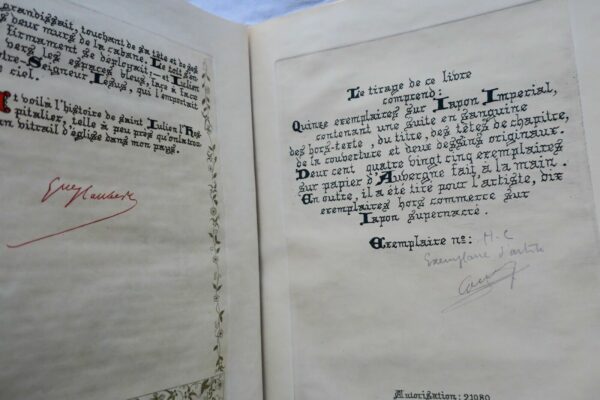 grandissait, touchant de sa tête et de ses
deux murs de la cabane. Le toit s'en
firmament se déployait; — et Julien
vers les espaces bleus, face à face
tre-Seigneur Jésus, qui l'emportait
ciel.
Et voilà l'histoire de saint Julien l'Hos
pitalier, telle à peu près qu'on la trou
un vitrail d'église dans mon pays.
Gve Flaubert
Le tirage de ce livre
comprend:
Quinze exemplaires sur Japon Impérial,
contenant une suite en sanguine
des hors-texte, du titre, des têtes de chapitre,
de la couverture et deux dessins originaux.
Deux cent quatre vingt cinq exemplaires
sur papier d'Auvergne fait à la main.
En outre, il a été tiré pour l'artiste, dix
exemplaires hors commerce sur
Japon supernacré.
Exemplaire no: H.C
Exemplaire d'artiste
Autorisation: 21080